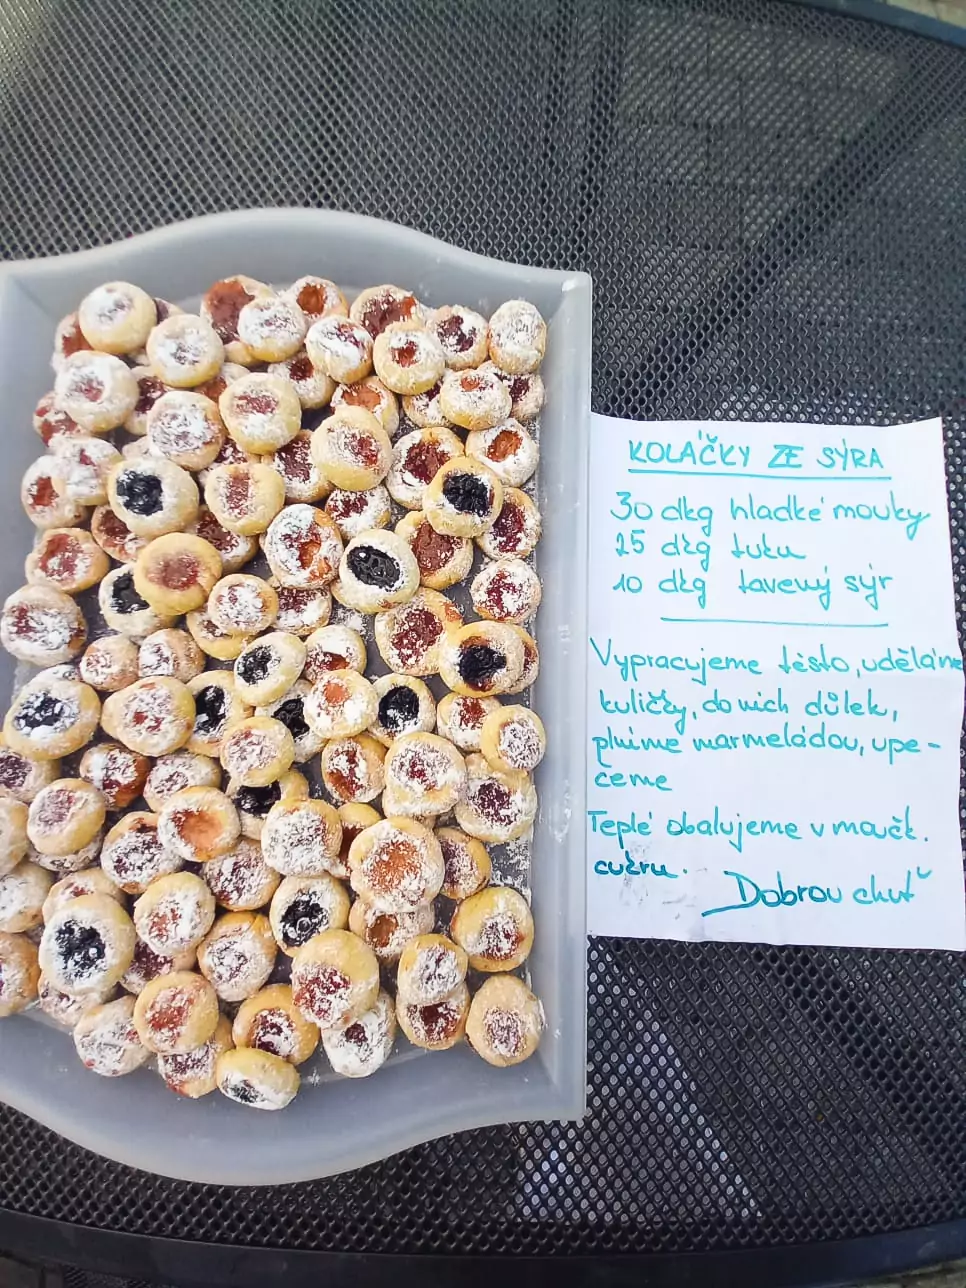 KOLÁČKY ZE SÝRA
30 dkg hladké mouky
25 dkg tuku
10 dkg tavený sýr
Vypracujeme těsto, uděláme
kuličky, do nich důlek,
plníme marmeládou, upe-
čeme
Teplé obalujeme v moučk.
cukru.
Dobrou chuť